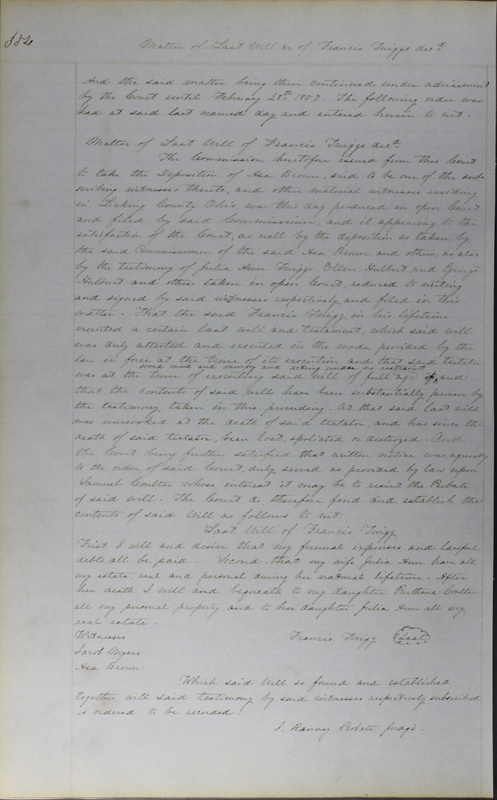 352
Matter of Last Will &c of Francis Twigg decd
And the said matter being then continued under advisement
by the Court until February 28th 1857. The following order was
had at said last named day and entered herein to wit.
Matter of Last Will of Francis Twigg decd
The Commission heretofore issued from this Court
to take the Deposition of Asa Brown, said to be one of the sub-
scribing witnesses thereto, and other material witnesses residing
in Licking County Ohio was this day produced in open Court
and filed by said Commissioner, and it appearing to the
satisfaction of the Court, as well by the deposition so taken by
the said Commissioner of the said Asa Brown and others, as also
by the testimony of Julia Ann Twigg, Ellen Hulbert and George
Hulbert and others taken in open Court, reduced to writing
and signed by said witnesses respectively, and filed in this
matter. That the said Francis Twigg in his lifetime
executed a certain last will and testament, which said will
was duly attested and executed in the mode provided by the
law in force at the time of its execution and that said testator
sound mind and memory and acting under no restraint
was at the time of executing said will of full age of, and
that the contents of said will have been substantially proven by
the testimony taken in this proceeding. At that said last will
was unrevoked at the death of said testator, and has since the
death of said testator been lost, spoliated or destroyed. And
the Court being further satisfied that written notice was agreeably
to the order of said Court, duly served as provided by law upon
Samuel Coulter whose interest it may be to resist the Probate
of said will. The Court do therefore find and establish the
contents of said Will as follows to wit:
Last Will of Francis Twigg
First I will and desire that my funeral expenses and lawful
debts all be paid. Second, that my wife Julia Ann have all
my estate real and personal during her natural lifetime. After
her death I will and bequeath to my daughter Coulter
all my personal property and to her daughter Julia Ann all my
real estate.
Witnesses
Francis Twigg (Seal)
Jacob Myers
Asa Brown
Which said Will so found and established
together with said testimony by said witnesses respectively subscribed
is ordered to be recorded.
J. Ranney Probate Judge